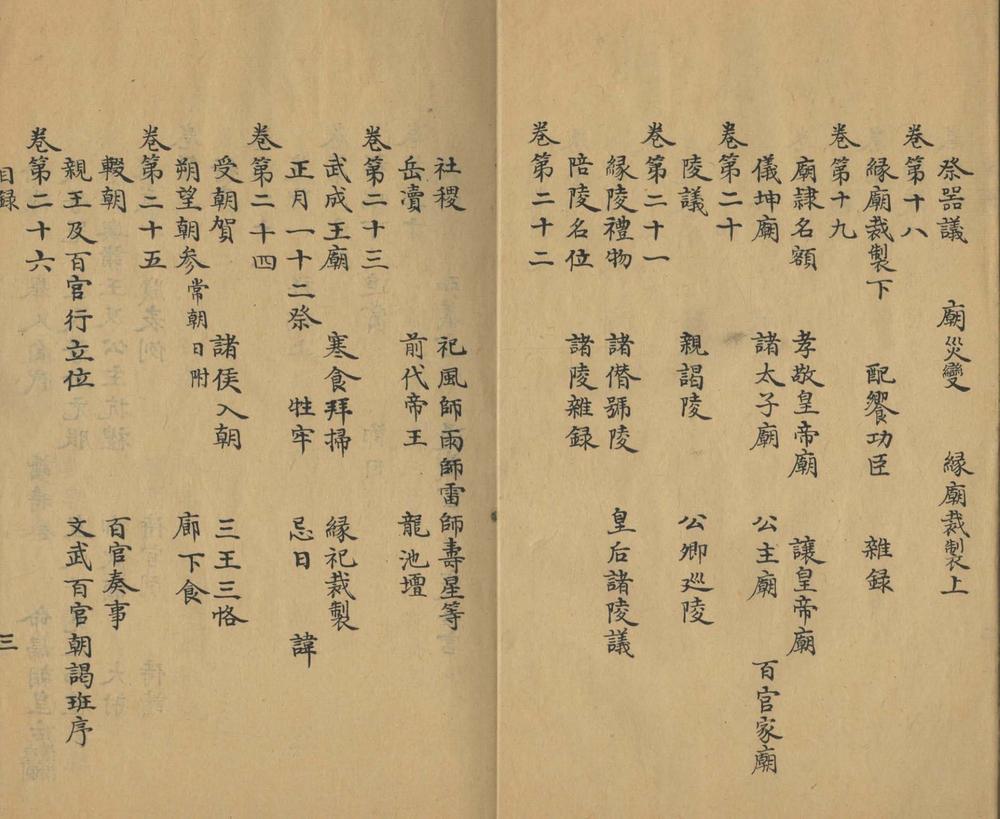 祭器議 廟災變 緣廟裁製上
卷第十八
緣廟裁製下 配饗功臣 雜録
卷第十九
廟隷名額 孝敬皇帝廟 讓皇帝廟
儀坤廟 諸太子廟 公主廟 百官家廟
卷第二十
陵議 親謁陵 公卿廵陵
卷第二十一
緣陵禮物 諸僭號陵 皇后諸陵議
陪陵名位 諸陵雜録
卷第二十二
社稷 祀風師雨師雷師壽星等
岳瀆 前代帝王 龍池壇
卷第二十三
武成王廟 寒食拜掃 緣祀裁製
正月一十二祭 牲牢 忌日 諱
卷第二十四
受朝賀 諸侯入朝 三王三恪
朔望朝参常朝日附 廊下食
卷第二十五
輟朝 百官奏事
親王及百官行立位 文武百官朝謁班序
卷第二十六
目録 三